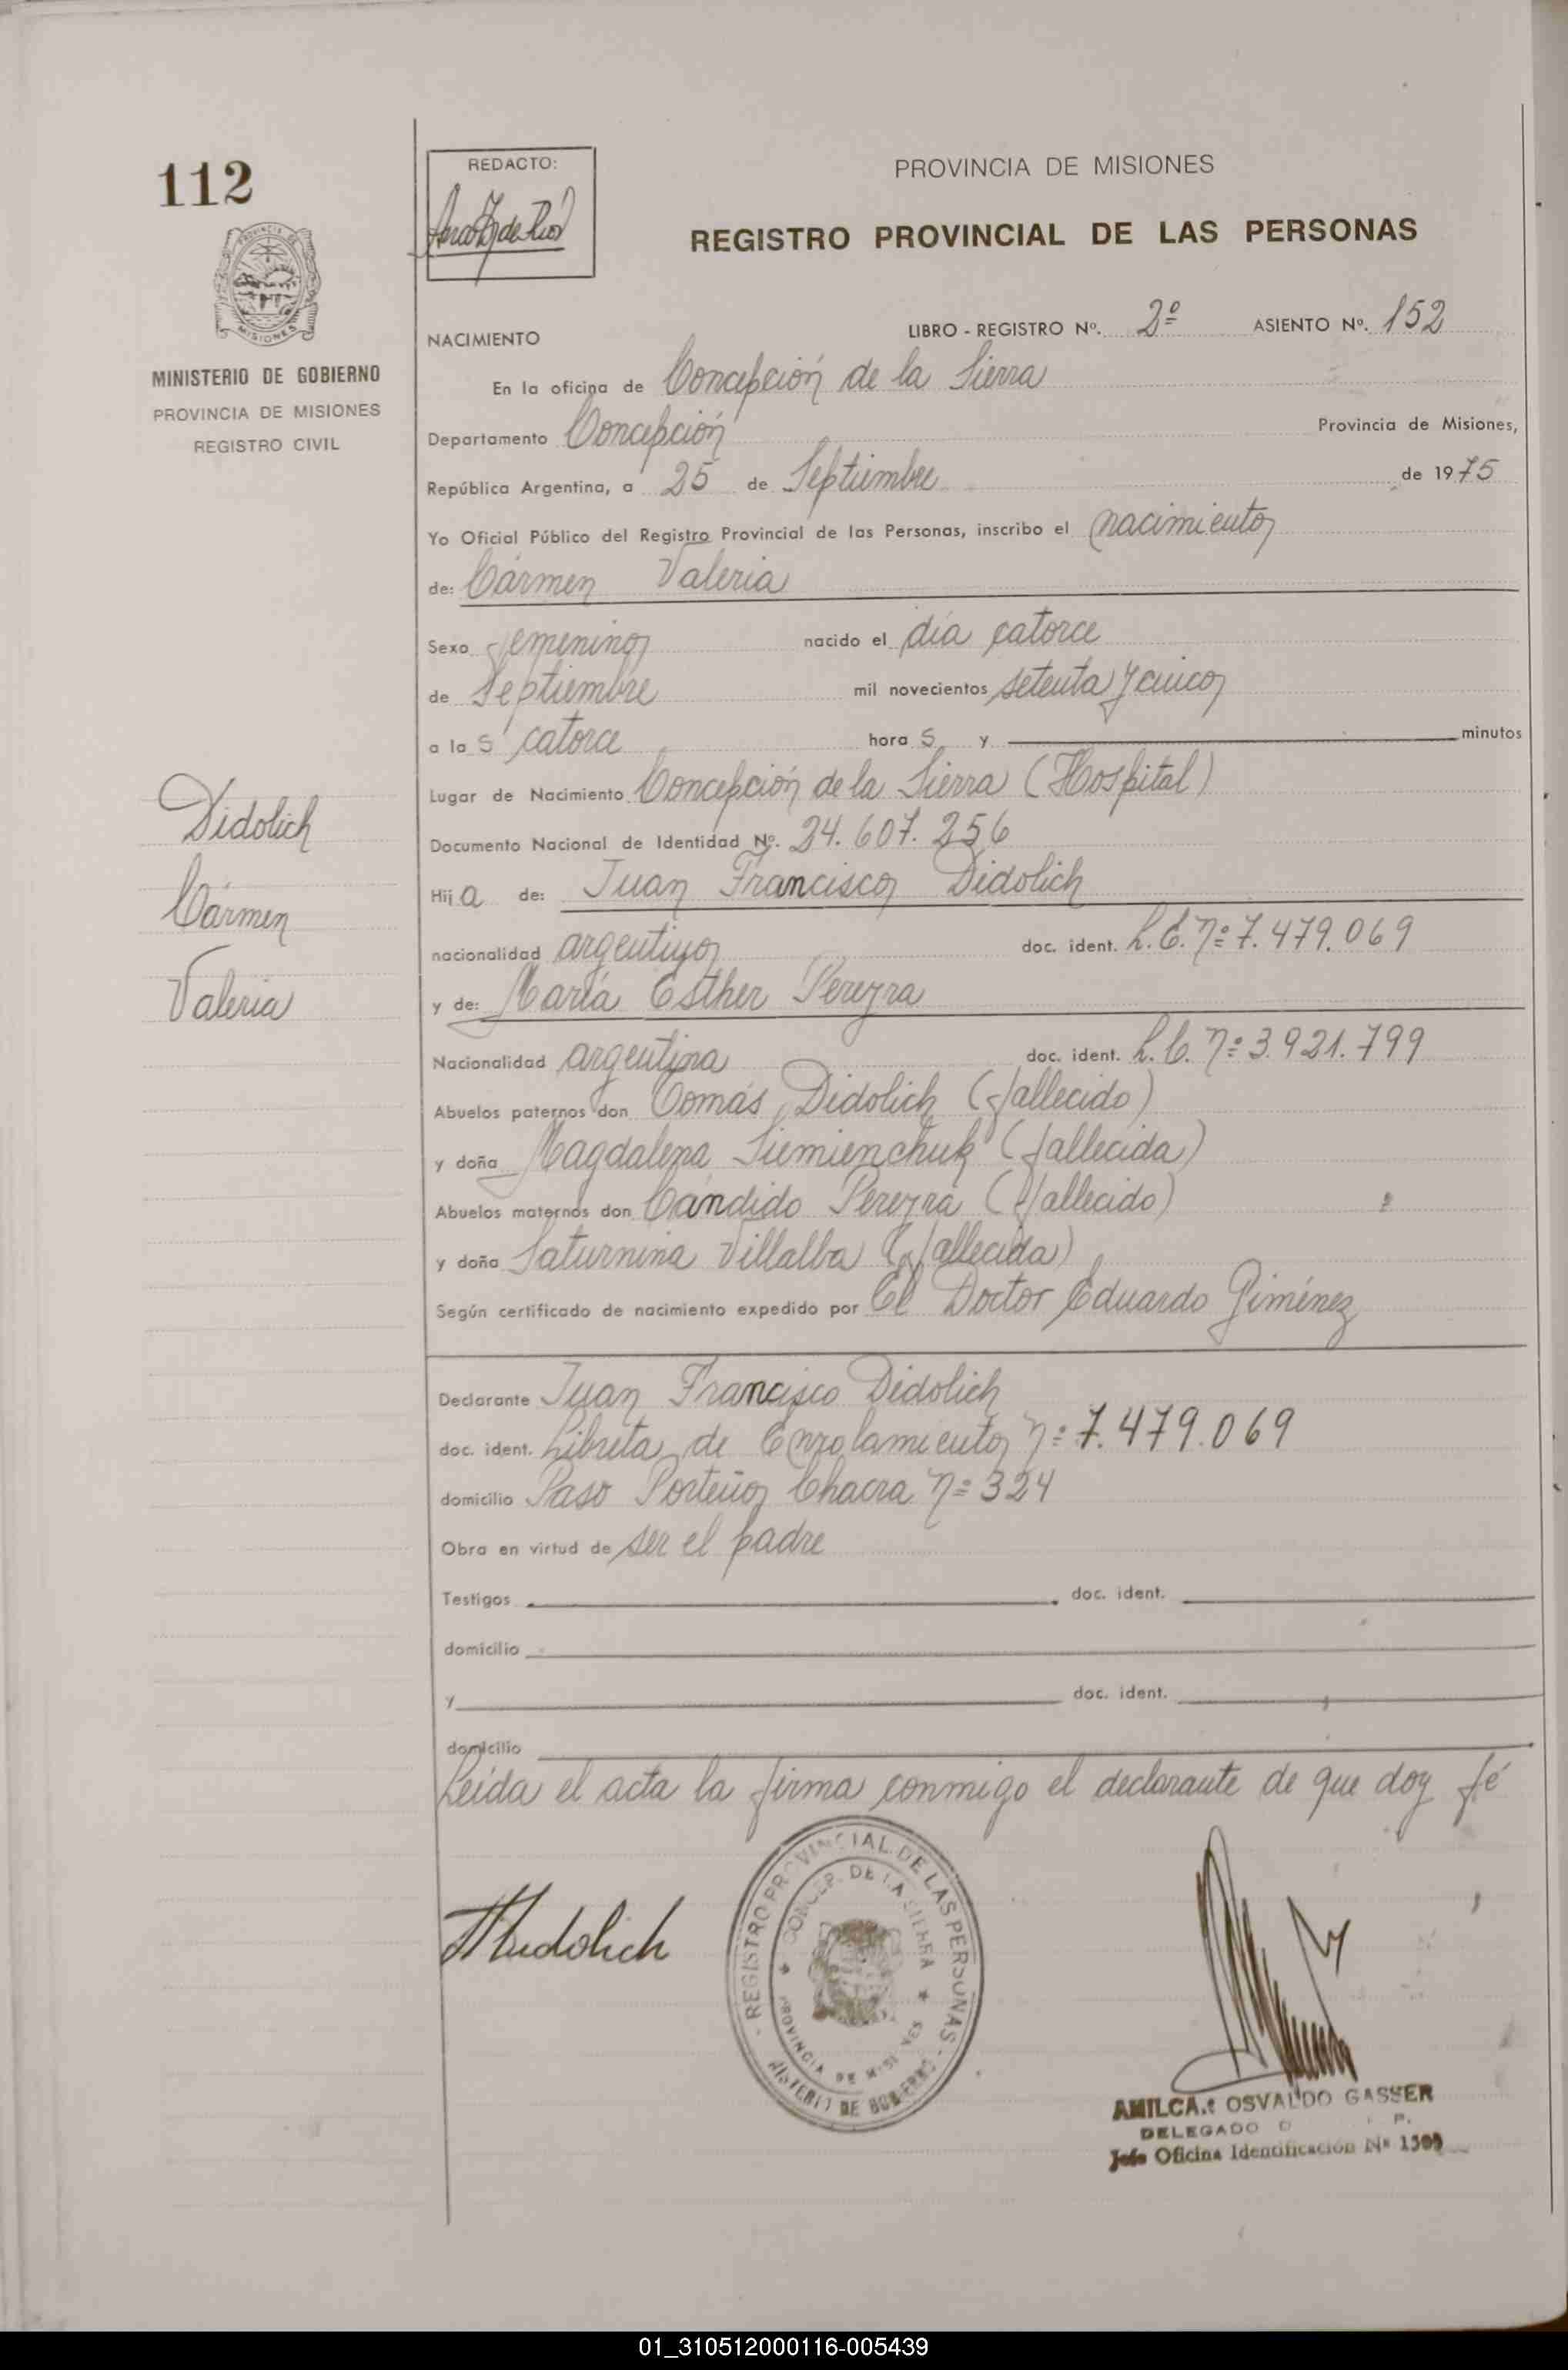 112
REDACTO:
PROVINCIA DE MISIONES
REGISTRO PROVINCIAL DE LAS PERSONAS
MISIONES
MINISTERIO DE GOBIERNO
PROVINCIA DE MISIONES
REGISTRO CIVIL
NACIMIENTO LIBRO - REGISTRO Nº. 2º ASIENTO Nº. 152
En la oficina de Concepción de la Sierra
Departamento Concepción Provincia de Misiones,
República Argentina, a 25 de Septiembre de 1975
Yo Oficial Público del Registro Provincial de las Personas, inscribo el nacimiento
de: Cármen Valeria
Sexo femenino nacido el día catorce
de Septiembre mil novecientos setenta y cinco
a la s catorce hora s y minutos
Lugar de Nacimiento Concepción de la Sierra (Hospital)
Documento Nacional de Identidad Nº. 24.607.256
Hij a de: Juan Francisco Didolich
nacionalidad argentino doc. ident. L.E. nº 7.479.069
y de: María Esther Pereyra
Nacionalidad argentina doc. ident. L.C. nº 3.921.799
Abuelos paternos don Tomás Didolich (fallecido)
y doña Magdalena Siemienchuk (fallecida)
Abuelos maternos don Cándido Pereyra (fallecido)
y doña Saturnina Villalba (fallecida)
Según certificado de nacimiento expedido por El Doctor Eduardo Giménez
Didolich
Cármen
Valeria
Declarante Juan Francisco Didolich
doc. ident. Libreta de Enrolamiento nº 7.479.069
domicilio Paso Porteño Chacra nº 324
Obra en virtud de ser el padre
Testigos doc. ident.
domicilio
y doc. ident.
domicilio
Leída el acta la firma conmigo el declarante de que doy fé
REGISTRO PROVINCIAL DE LAS PERSONAS
CONCEP. DE LA SIERRA
PROVINCIA DE MISIONES
MINISTERIO DE GOBIERNO
AMILCAR OSVALDO GASSER
DELEGADO
Jefe Oficina Identificación Nº
01_310512000116-005439